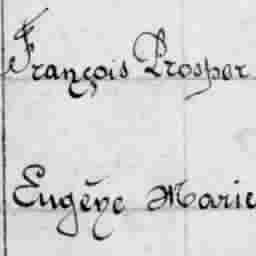 François Prosper
Eugène Marie